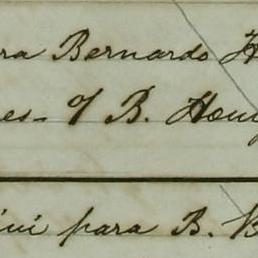 ra Bernardo H
es- % B. Hou
ini para B. B